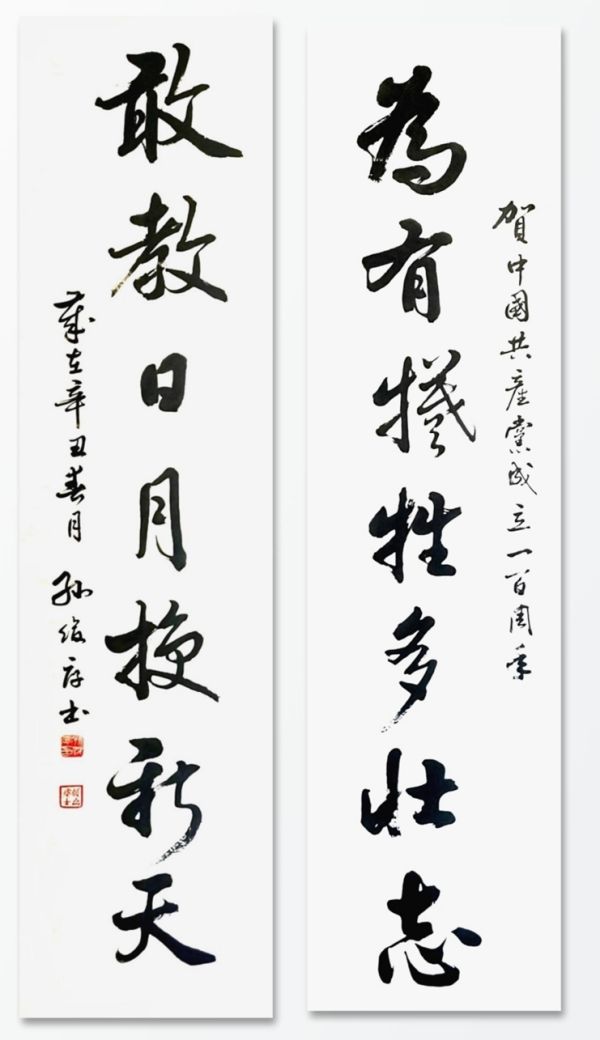 賀中國共產黨成立一百周年
為有犧牲多壯志
敢教日月換新天
歲在辛丑春月 孫俊书